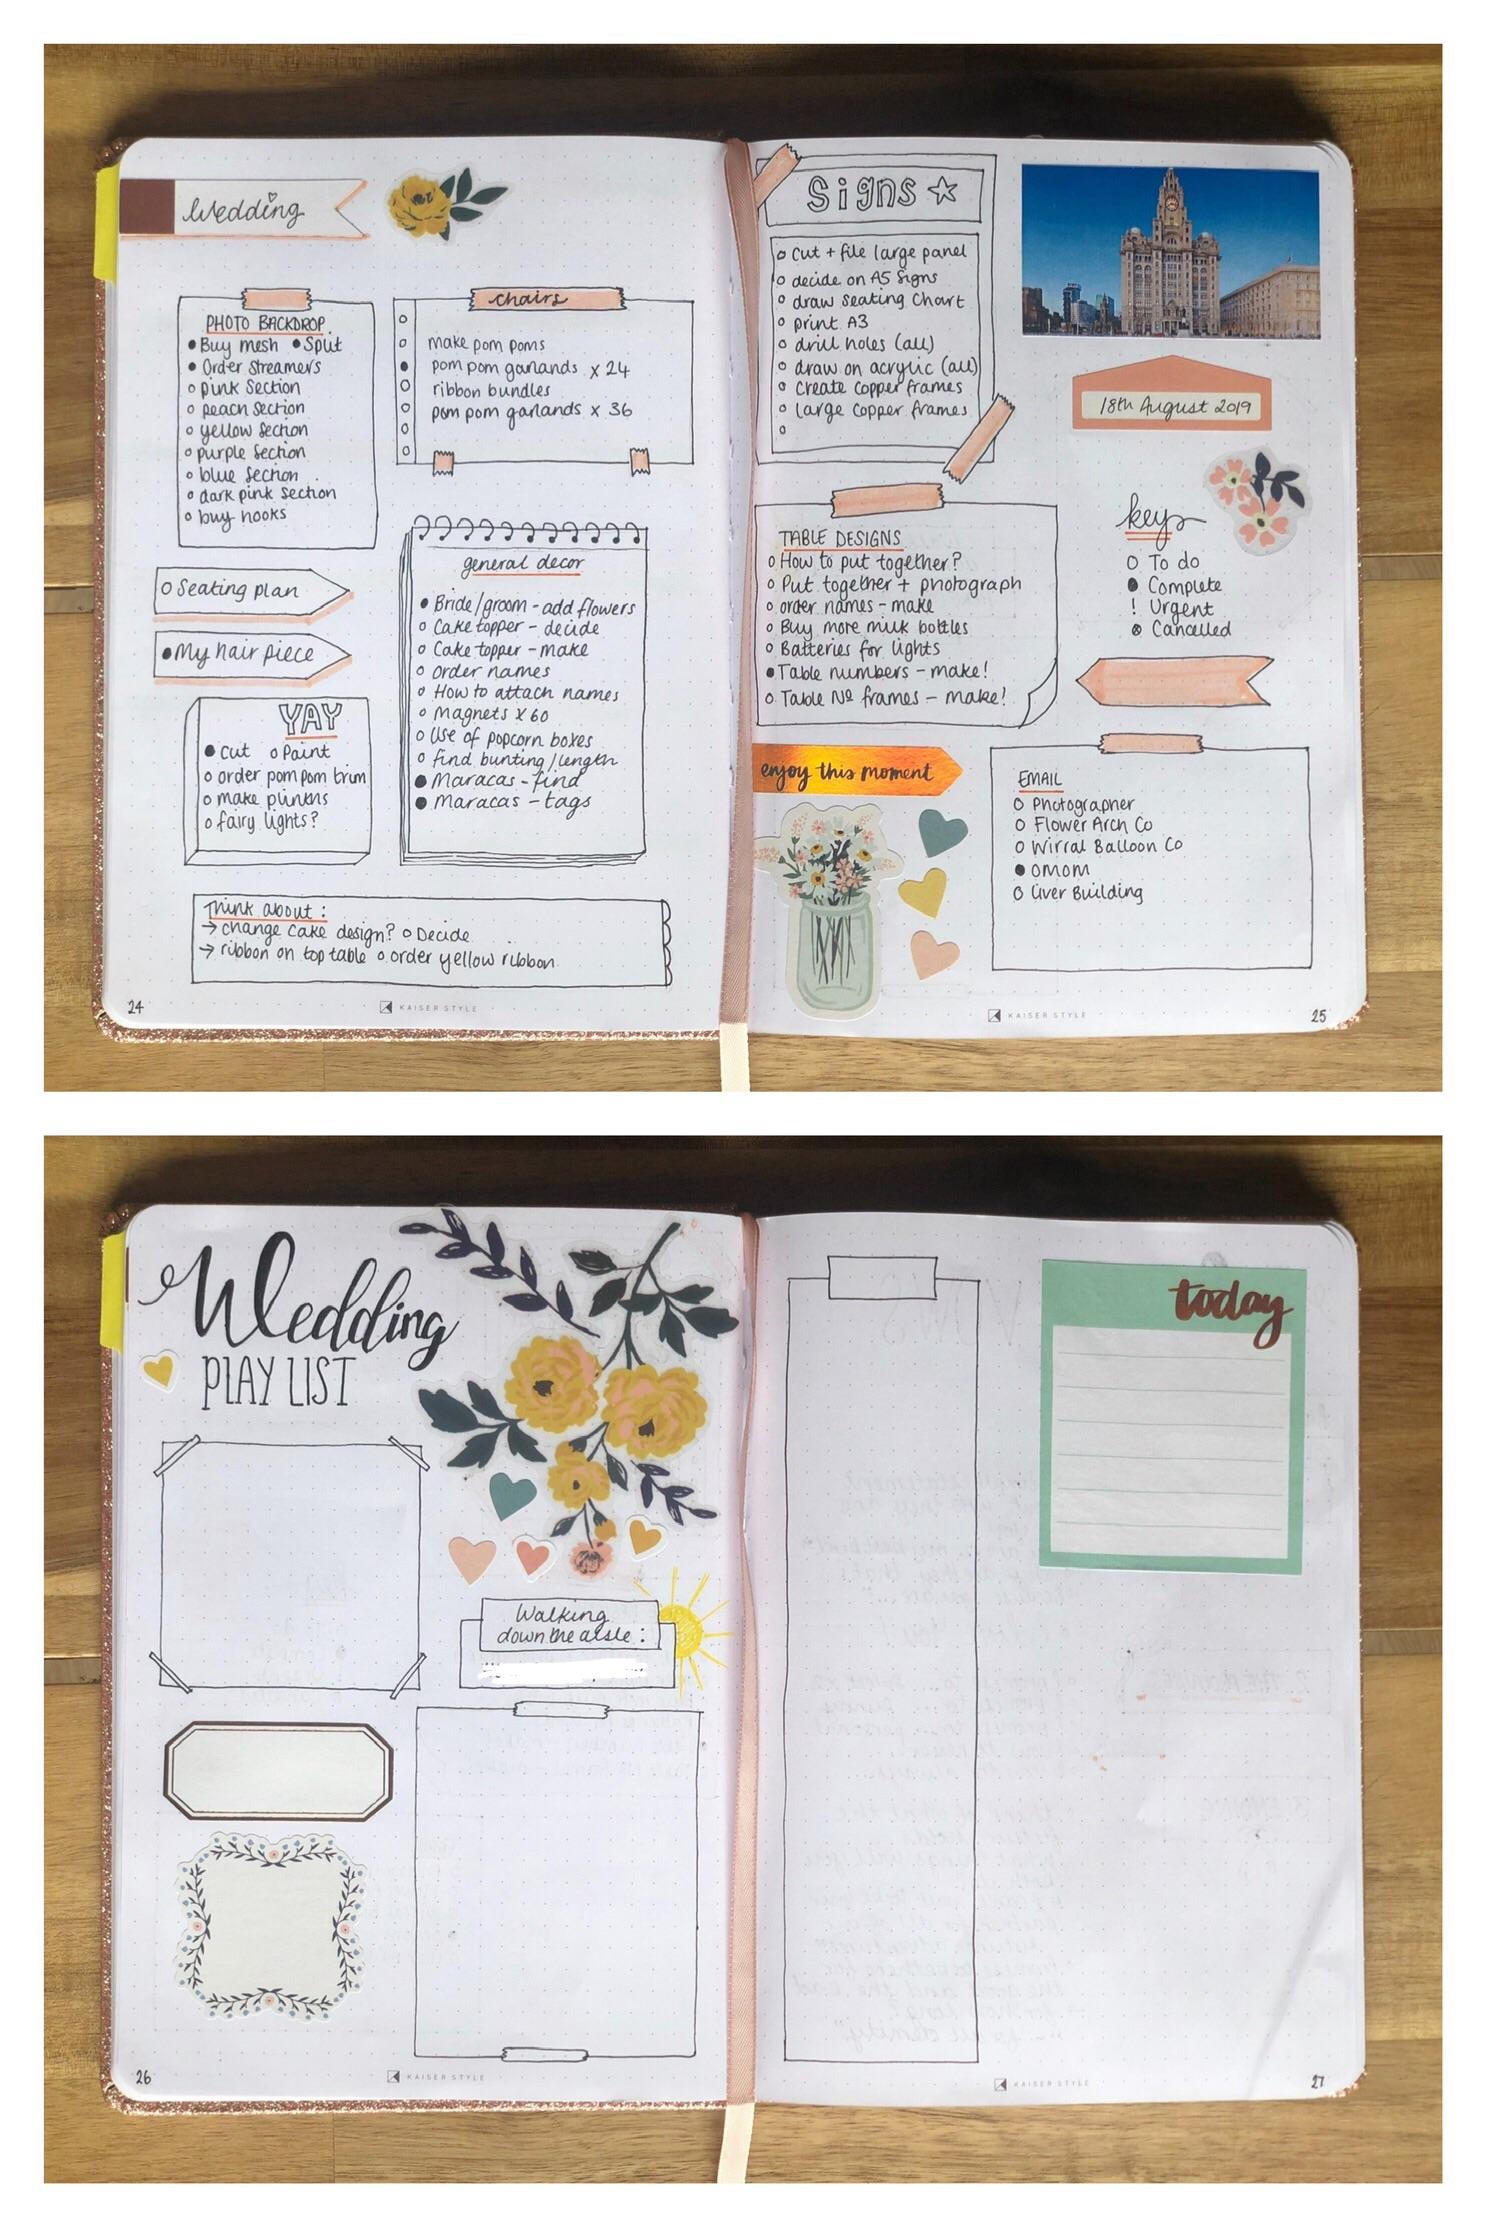 Wedding
PHOTO BACKDROP
● Buy mesh ● Split
● Order Streamers
○ pink Section
○ peach Section
○ yellow Section
○ purple Section
○ blue Section
○ dark pink section
○ buy hooks
chairs
○
○ make pom poms
● pom pom garlands x 24
○ ribbon bundles
○ pom pom garlands x 36
○
○
○ Seating plan
● My hair piece
YAY
● cut ○ Paint
○ order pom pom trim
○ make plinths
○ fairy lights?
general decor
● Bride/groom - add flowers
○ Cake topper - decide
○ Cake topper - make
○ Order names
○ How to attach names
○ Magnets x 60
○ Use of popcorn boxes
○ find bunting/length
● Maracas - find
● Maracas - tags
Think about:
→ change cake design? ○ Decide
→ ribbon on top table ○ order yellow ribbon
24
KAISER STYLE
Signs ☆
○ cut + file large panel
○ decide on A5 Signs
○ draw seating Chart
○ print A3
○ drill holes (all)
○ draw on acrylic (all)
○ create copper frames
○ large copper frames
○
18th August 2019
TABLE DESIGNS
○ How to put together?
○ Put together + photograph
○ order names - make
○ Buy more milk bottles
○ Batteries for lights
● Table numbers - make!
○ Table Nº frames - make!
key
○ To do
● Complete
! Urgent
⊗ Cancelled
enjoy this moment
EMAIL
○ Photographer
○ Flower Arch Co
○ Wirral Balloon Co
● OMOM
○ Liver Building
KAISER STYLE
25
Wedding
PLAY LIST
Walking
down the aisle:
26
KAISER STYLE
today
KAISER STYLE
27